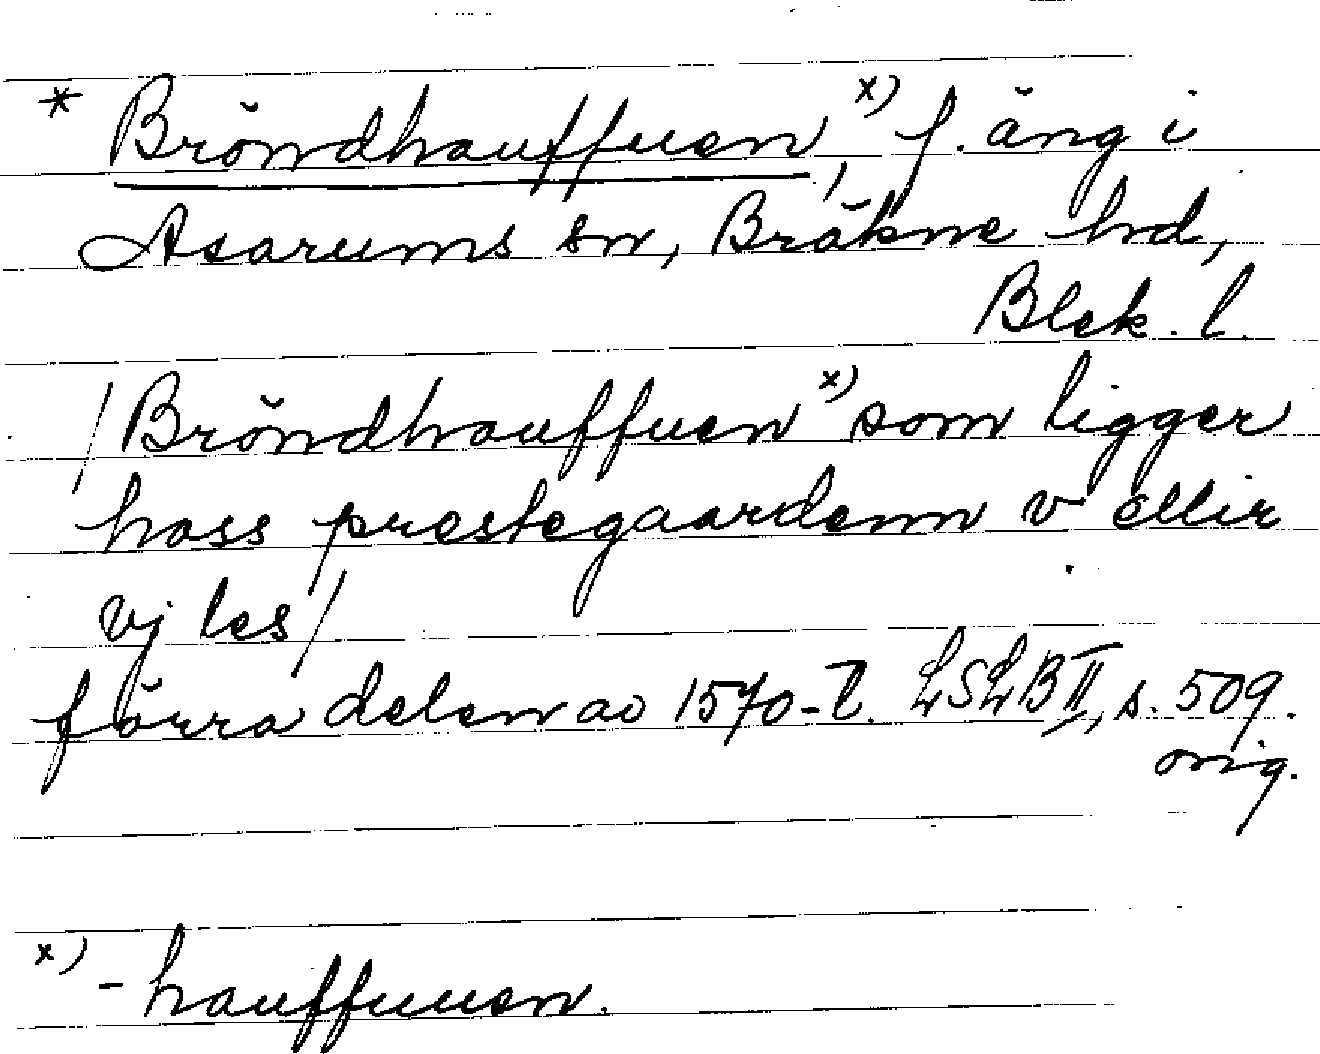 * Bröndhauffuen,ˣ⁾ f. äng i
Asarums sn, Bräkne hd,
Blek. l.
/Bröndhauffuenˣ⁾ som ligger
hoss prestegaardenn v ellir
vj les/
förra delen av 1570-t. LSLB II, s. 509.
orig.
ˣ⁾ -hauffuuen.